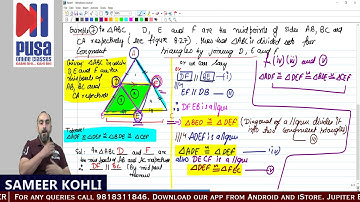 PUSA
ONLINE CLASSES
Example 7 In △ABC, D, E and F are the midpoints of sides AB, BC and
CA respectively (see figure 8.27). Show that △ABC is divided into four
Congruent triangles by joining D, E and F.
Given: △ABC in which
D, E and F are
the midpoints of
AB, BC and
CA respectively
we can say
DF || BE — i)
EF || DB
∴ DFEB is a ||gm
△BED ≅ △DEF
(Diagonal of a ||gm divides it
into two congruent triangles)
ADEF is a ||gm
△ADF ≅ △DEF
also DECF is a ||gm
△DEF ≅ △FEC
iv) v) and vi)
△ADF ≅ △DEF ≅ △BDE ≅ △CEF
To prove:
△ADF ≅ △DEF ≅ △BDE ≅ △CEF
Sol: In △ABC D and F are
the midpoints of AB and AC respectively
DF || BC (By midpoint
theorem)
SAMEER KOHLI
ER! | For any queries call 9818311846. Download our app from Android and iStore. Jupiter E